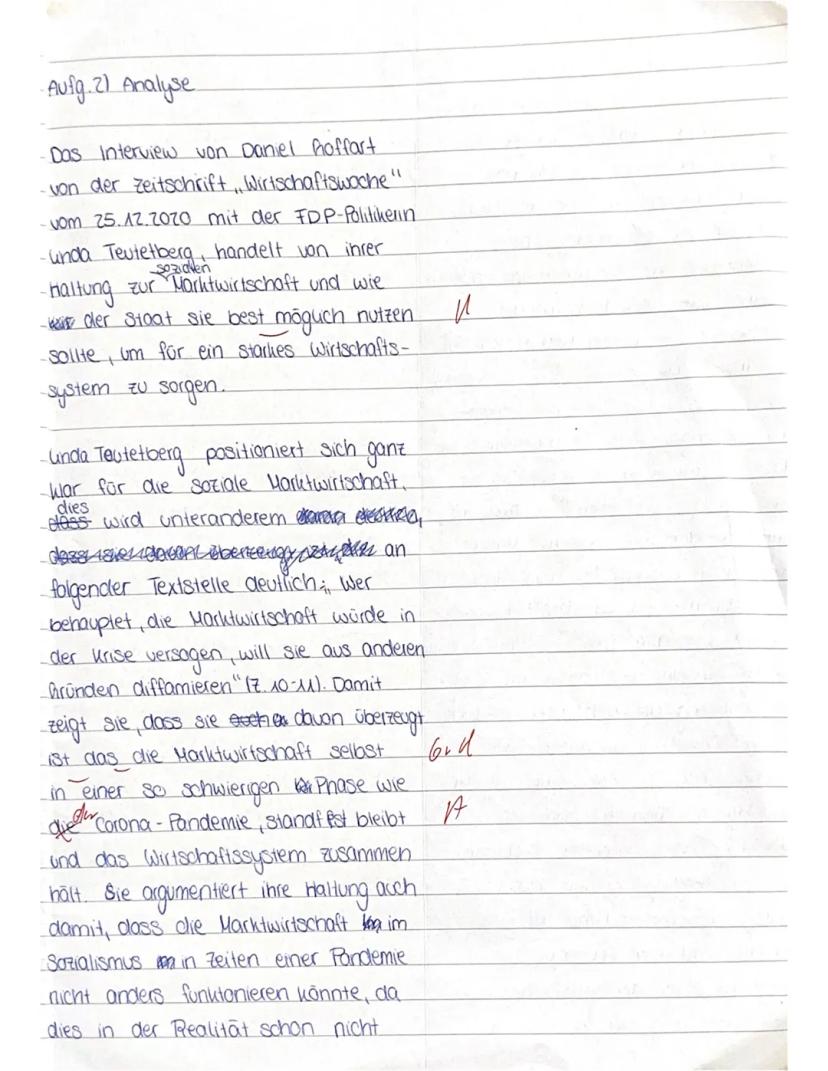 Aufg. 2) Analyse
Das Interview von Daniel Goffart
von der Zeitschrift „Wirtschaftswoche"
vom 25.12.2020 mit der FDP-Politikerin
Linda Teutetberg, handelt von ihrer
sozialen
Haltung zur Marktwirtschaft und wie
der Staat sie best möglich nutzen
sollte, um für ein starkes Wirtschafts-
system zu sorgen.
Linda Teutetberg positioniert sich ganz
klar für die soziale Marktwirtschaft,
dies
dass wird unteranderem an
folgender Textstelle deutlich: „Wer
behauptet, die Marktwirtschaft würde in
der Krise versagen, will sie aus anderen
Gründen diffamieren" (Z. 10-11). Damit
zeigt sie, dass sie davon überzeugt
ist das die Marktwirtschaft selbst
in einer so schwierigen Phase wie
die der Corona-Pandemie, standfest bleibt
A
und das Wirtschaftssystem zusammen
hält. Sie argumentiert ihre Haltung auch
damit, dass die Marktwirtschaft im
Sozialismus in Zeiten einer Pandemie
nicht anders funktonieren könnte, da
dies in der Realität schon nicht